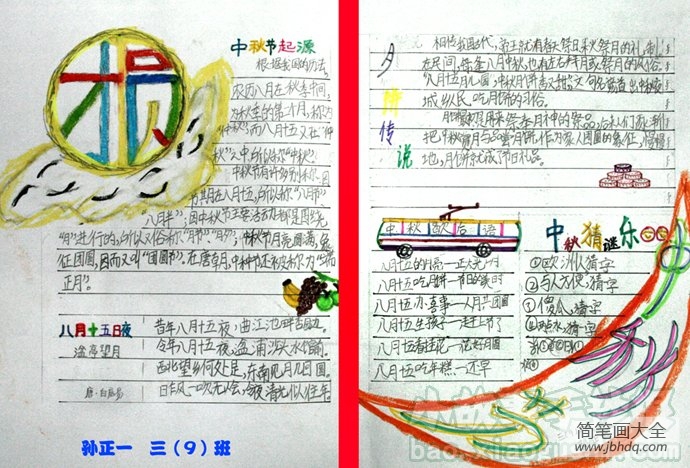 中秋节起源
根据我国的历法,
农历八月在秋季中间,
为秋季的第二个月,称为
"仲秋",而八月十五又在"仲
秋"之中,所以称"中秋"。
中秋节有许多别称:因
节期在八月十五,所以称"八月节"、
"八月半";因中秋节主要活动都是围绕
"月"进行的,所以又俗称"月节""月夕";中秋节月亮圆满,象
征团圆,因而又叫"团圆节"。在唐朝,中秋节还被称为"端
正月"。
八月十五日夜
湓亭望月
唐·白居易
昔年八月十五夜,曲江池畔杏园边。
今年八月十五夜,湓浦沙头水馆前。
西北望乡何处是,东南见月几回圆。
昨风一吹无人会,今夜清光似往年
孙正一 三(9)班
月饼传说
相传我国古代,帝王就有春天祭日秋祭月的礼制。
在民间,每逢八月中秋,也有左右拜月或祭月的风俗。
"八月十五月儿圆,中秋月饼香又甜",这句名谚道出中秋夜
城乡人民吃月饼的习俗。
月饼最初是用来祭奉月神的祭品,后来人们逐渐
把中秋赏月与品尝月饼,作为家人团圆的象征,慢慢
地,月饼就成了节日礼品。
中秋歇后语
八月十五的月亮—正大光明
八月十五吃月饼—节日的美食
八月十五办喜事—人月共团圆
八月十五生孩子—赶上节了
八月十五看桂花—花好月圆
八月十五吃年糕—还早
中秋猜谜乐
①欧洲人猜字
②与人方便,猜字
③傻人,猜字
猜字
秋
简笔画大全
www.jbhdq.com